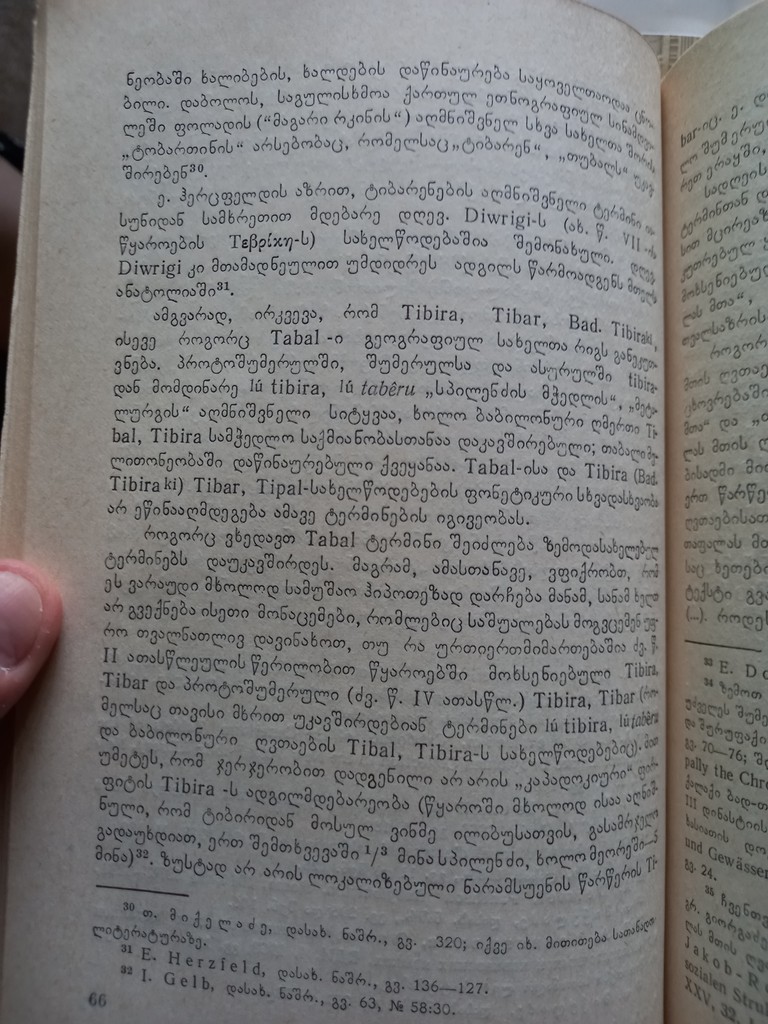 ნეობაში ხალიბების, ხალდების დაწინაურება საყოველთაოდაა ცნო-
ბილი. დაბოლოს, საგულისხმოა ქართულ ეთნოგრაფიულ სინამდვი-
ლეში ფოლადის („მაგარი რკინის“) აღმნიშვნელ სხვა სახელთა შორის
„ტობართინის“ არსებობაც, რომელსაც „ტიბარენ“, „თუბალს“
შირებენ³⁰.
ე. ჰერცფელდის აზრით, ტიბარენების აღმნიშვნელი ტერმინი
სუნიდან სამხრეთით მდებარე დღევ. Diwrigi-ს (ახ. წ. VII
წყაროების Τεβρίκη-ს) სახელწოდებაშია შემონახული. დღევ.
Diwrigi კი მთამადნეულით უმდიდრეს ადგილს წარმოადგენს მთელს
ანატოლიაში³¹.
ამგვარად, ირკვევა, რომ Tibira, Tibar, Bad. Tibiraki,
ისევე როგორც Tabal-ი გეოგრაფიულ სახელთა რიგს განეკუთ-
ვნება. პროტოშუმერულში, შუმერულსა და ასურულში tibira-
დან მომდინარე lú tibira, lú tabêru „სპილენძის მჭედლის“, „მეტა-
ლურგის“ აღმნიშვნელი სიტყვაა, ხოლო ბაბილონური ღმერთი Ti-
bal, Tibira სამჭედლო საქმიანობასთანაა დაკავშირებული; თაბალი მე-
ლითონეობაში დაწინაურებული ქვეყანაა. Tabal-ისა და Tibira (Bad.
Tibira ki) Tibar, Tipal-სახელწოდებების ფონეტიკური სხვადასხვაობა
არ ეწინააღმდეგება ამავე ტერმინების იგივეობას.
როგორც ვხედავთ Tabal ტერმინი შეიძლება ზემოდასახელებულ
ტერმინებს დაუკავშირდეს. მაგრამ, ამასთანავე, ვფიქრობთ, რომ
ეს ვარაუდი მხოლოდ სამუშაო ჰიპოთეზად დარჩება მანამ, სანამ ხელთ
არ გვექნება ისეთი მონაცემები, რომლებიც საშუალებას მოგვცემენ უფ-
რო თვალნათლივ დავინახოთ, თუ რა ურთიერთმიმართებაშია ძვ. წ.
II ათასწლეულის წერილობით წყაროებში მოხსენიებული Tibira,
Tibar და პროტოშუმერული (ძვ. წ. IV ათასწლ.) Tibira, Tibar (რო-
მელსაც თავისი მხრით უკავშირდებიან ტერმინები lú tibira, lú tabêru
და ბაბილონური ღვთაების Tibal, Tibira-ს სახელწოდებებიც). მით
უმეტეს, რომ ჯერჯერობით დადგენილი არ არის „კაპადოკიური“ ფირ-
ფიტის Tibira -ს ადგილმდებარეობა (წყაროში მხოლოდ ისაა აღნიშ-
ნული, რომ ტიბირიდან მოსულ ვინმე ილიბუსათვის, გასამრჯელო
გადაუხდიათ, ერთ შემთხვევაში ¹/₃ მინა სპილენძი, ხოლო მეორეში—5
მინა)³². ზუსტად არ არის ლოკალიზებული ნარამსუენის წარწერის Ti-
³⁰ თ. მიქელაძე, დასახ. ნაშრ., გვ. 320; იქვე იხ. მითითება სათანადო
ლიტერატურაზე.
³¹ E. Herzfeld, დასახ. ნაშრ., გვ. 136—127.
³² I. Gelb, დასახ. ნაშრ., გვ. 63, № 58:30.
66
bar-იც. ე.
ლო შუმერულ
რეთ ერაყში,
სადღეის
ტერმინთან
სით მცირეაზ
კუთრებულ
მოხსენიებულ
ლას მთა“,
თვალსაზრის
როგორ
მთის ღვთაე
ცხოვრებაში
მთა“ და
ლას მთის
ბისადმი მი
ერთ წარწე
ღვთაებისათ
თაფალას მთ
საც ხეთებ
ტექსტი გვა
(...). როდეს
³³ E. Do
³⁴ ზემოთ
უძველეს შუმე
და შურუფაქი
გვ. 70—76; შდ
pally the Chro
ქალაქი ბად-თი
III დინასტიის
ხასიათის დო
und Gewässer
გვ. 24.
³⁵ ჩვენთვ
გრ. გიორგაძე
ლას მთის ღვ
Jakob-R
sozialen Struk
XXV, 32,